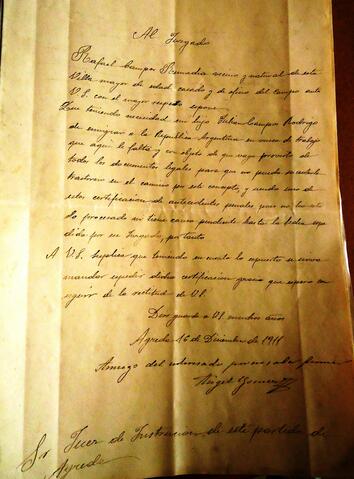 Al Juzgado
Rafael Campos Remacha vecino y natural de esta
Villa mayor de edad, casado y de oficio del campo ante
V.S. con el mayor respeto expone:
Que teniendo necesidad su hijo Julian Campos Rodrigo
de emigrar a la Republica Argentina en busca de trabajo
que aqui le falta y con objeto de que vaya provisto de
todos los documentos legales para que no pueda sucederle
trastorno en el camino por este concepto, y siendo uno de
estos certificacion de antecedentes penales que no ha sido
procesado ni tiene causa pendiente hasta la fecha expe
dida por su Juzgado, por tanto
A V.S. suplica que teniendo en cuenta lo expuesto se sirva
mandar expedir dicha certificacion gracia que espera con
seguir de la rectitud de V.S.
Dios guarde a VS muchos años
Agreda 16 de Diciembre de 1911
Amigo del interesado por no saber firmar
Angel Gomez
Sr Juez de Instruccion de este partido de
Agreda